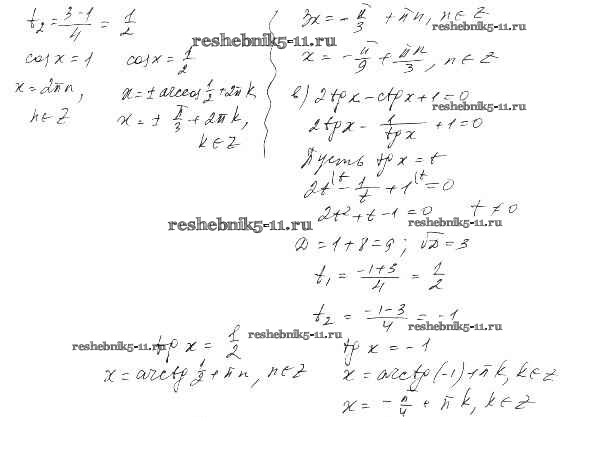 t₂ = (3-1)/4 = 1/2
cos x = 1    cos x = 1/2
x = 2πn,    x = ± arccos 1/2 + 2πk
n ∈ Z    x = ± π/3 + 2πk,
k ∈ Z
3x = - π/3 + πn, n ∈ Z
x = - π/9 + πn/3, n ∈ Z
в) 2tg x - ctg x + 1 = 0
2tg x - 1/tg x + 1 = 0
Пусть tg x = t
2t^(t - 1/t + 1^(t = 0
2t² + t - 1 = 0    t ≠ 0
D = 1 + 8 = 9; √D = 3
t₁ = (-1+3)/4 = 1/2
t₂ = (-1-3)/4 = -1
tg x = 1/2    tg x = -1
x = arctg 1/2 + πn, n ∈ Z    x = arctg(-1) + πk, k ∈ Z
x = - π/4 + πk, k ∈ Z
reshebnik5-11.ru
reshebnik5-11.ru
reshebnik5-11.ru
reshebnik5-11.ru
reshebnik5-11.ru
reshebnik5-11.ru
reshebnik5-11.ru
reshebnik5-11.ru